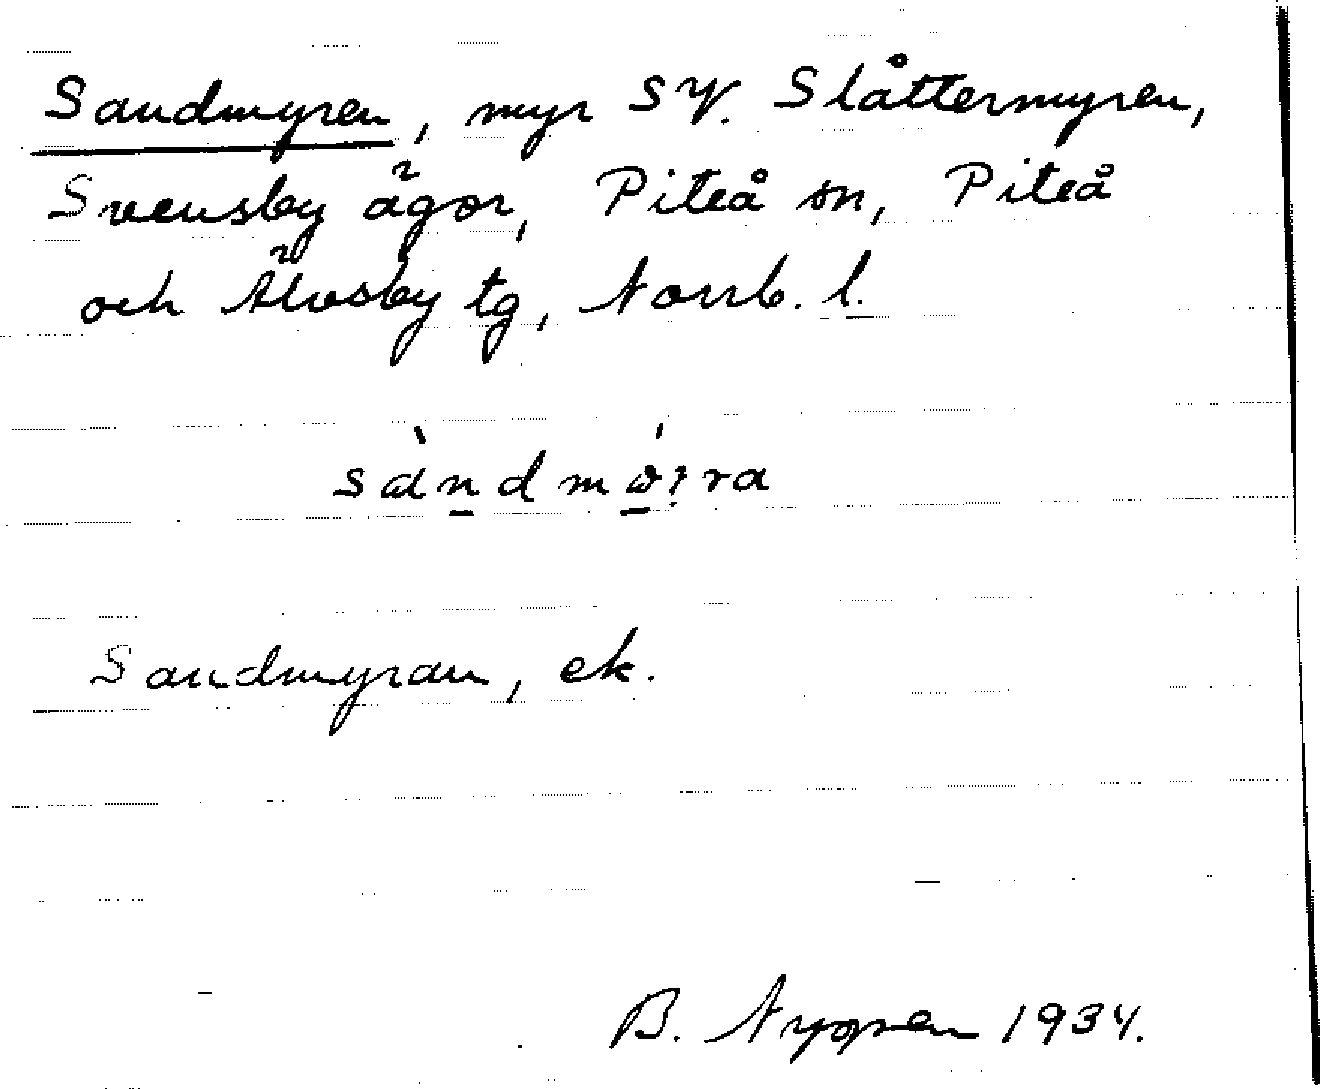 Sandmyren, myr SV. Slåttermyren,
Svensby ägor, Piteå sn, Piteå
och Älvsby tg, Norrb. l.
Sandmyran, ek.
B. Nygren 1934.